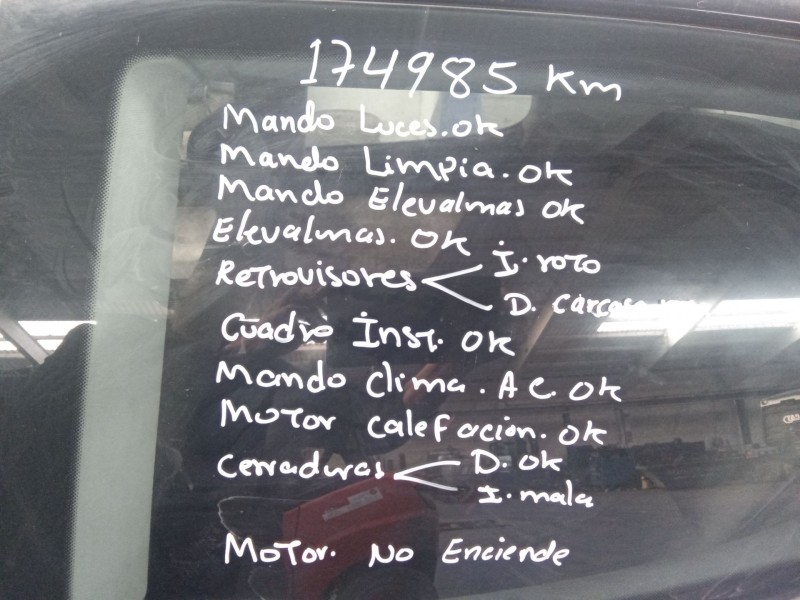 174985 Km
Mando Luces. ok
Mando Limpia. ok
Mando Elevalmas ok
Elevalmas. ok
Retrovisores
I. roto
D. carcasa
Cuadro Inst. ok
Mando clima. A C. ok
Motor calefacion. ok
Cerraduras
D. ok
I. mala
Motor. No Enciende